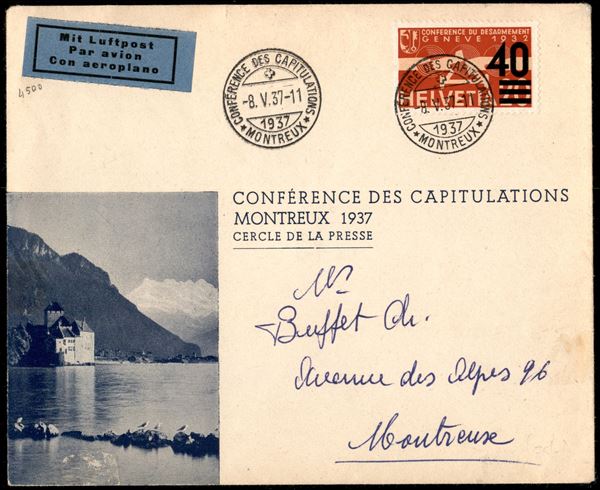 Mit Luftpost
Par avion
Con aeroplano
4500
CONFÉRENCE DES CAPITULATIONS
-8.V.37-11
1937
★ MONTREUX ★
CONFÉRENCE DU DÉSARMEMENT
GENÈVE 1932
40
HELVETIA
CONFÉRENCE DES CAPITULATIONS
-8.V.37-11
1937
★ MONTREUX ★
CONFÉRENCE DES CAPITULATIONS
MONTREUX 1937
CERCLE DE LA PRESSE
Mr
Buffet Ch.
Avenue des Alpes 96
Montreux